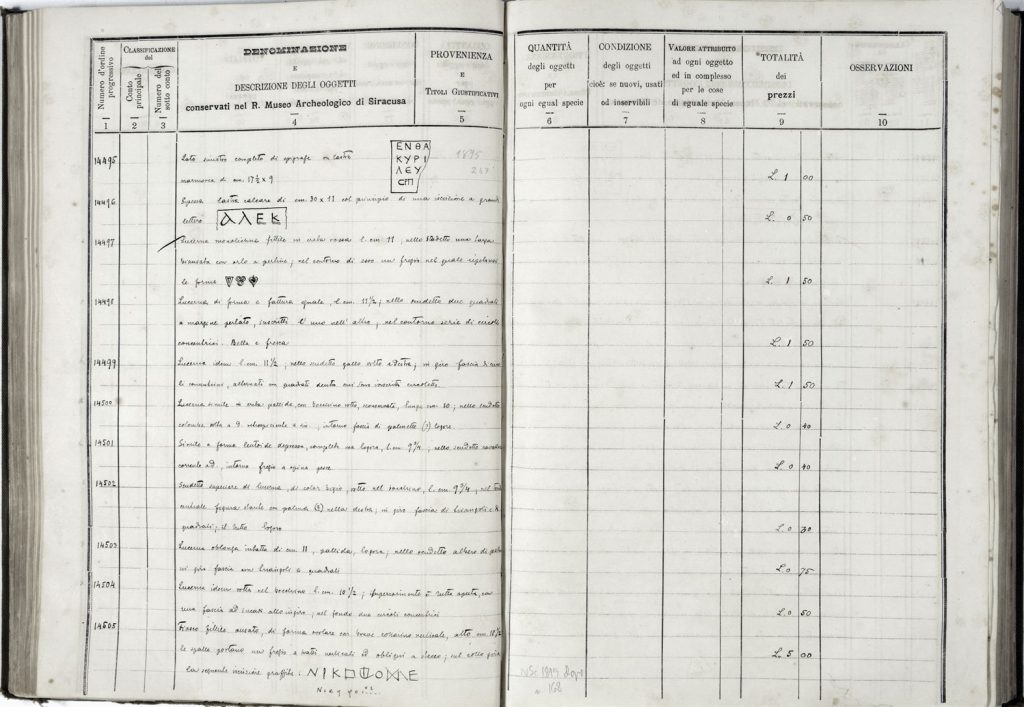 Numero d'ordine progressivo
CLASSIFICAZIONE del
Conto principale
Numero del sotto conto
DENOMINAZIONE
E
DESCRIZIONE DEGLI OGGETTI
conservati nel R. Museo Archeologico di Siracusa
PROVENIENZA
E
TITOLI GIUSTIFICATIVI
QUANTITÀ
degli oggetti
per
ogni egual specie
CONDIZIONE
degli oggetti
cioè: se nuovi, usati
od inservibili
VALORE ATTRIBUITO
ad ogni oggetto
ed in complesso
per le cose
di eguale specie
TOTALITÀ
dei
prezzi
OSSERVAZIONI
1 2 3 4 5 6 7 8 9 10
14495
Lato sinistro completo di epigrafe in lastra
marmorea di cm. 17½ x 9
ΕΝΘΑ
ΚΥΡΙ
ΛΕΥ
1895
L. 1 00
14496
lastra calcare di cm. 30 x 11 col principio di una iscrizione a grandi
lettere ΑΛΕΚ
L. 0 50
14497
Lucerna fittile in creta rossa l. cm 11; nello scudetto una larga
con orlo a perline; nel contorno di esso un fregio nel quale
le forme
L. 1 50
14498
Lucerna di forma e fattura eguale, l. cm. 11½; nello scudetto due quadrati
a margine perlato, inscritti l'uno nell'altro, nel contorno serie di circoli
concentrici. Bella e fresca
L. 1 50
14499
Lucerna idem l. cm 11½; nello scudetto gallo volto a destra; in giro fascia di
concentrici, alternati con quadrati
L. 1 50
14500
Lucerna simile in creta pallida, con becchino rotto, lunga cm. 10; nello scudetto
colomba volta a d. a sin., intorno fascia di palmette (?) logore
L. 0 40
14501
Simile a forma lenticolare depressa, completa ma logora, l. cm. 9¾, nello scudetto
corrente a d., intorno fregio a spina pesce.
L. 0 40
14502
Scudetto superiore di lucerna, di color bigio, rotto nel becchino, l. cm 9¾, nel
figura stante con (?) nella destra; in giro fascia di triangoli e di
quadrati; il tutto logoro
L. 0 30
14503
Lucerna oblunga intatta di cm 11, pallida, logora; nello scudetto albero di
in giro fascia con triangoli e quadrati
L. 0 75
14504
Lucerna idem rotta nel becchino l. cm. 10½; superiormente è tutta aperta, con
una fascia all'ingiro; nel fondo due circoli concentrici
L. 0 50
14505
Fiasco fittile ansato, di forma con breve collarino verticale, alto cm. 18½
le spalle portano un fregio a tratti verticali ed obliqui a stecco; sul collo gira
la seguente iscrizione graffita:
L. 5 00